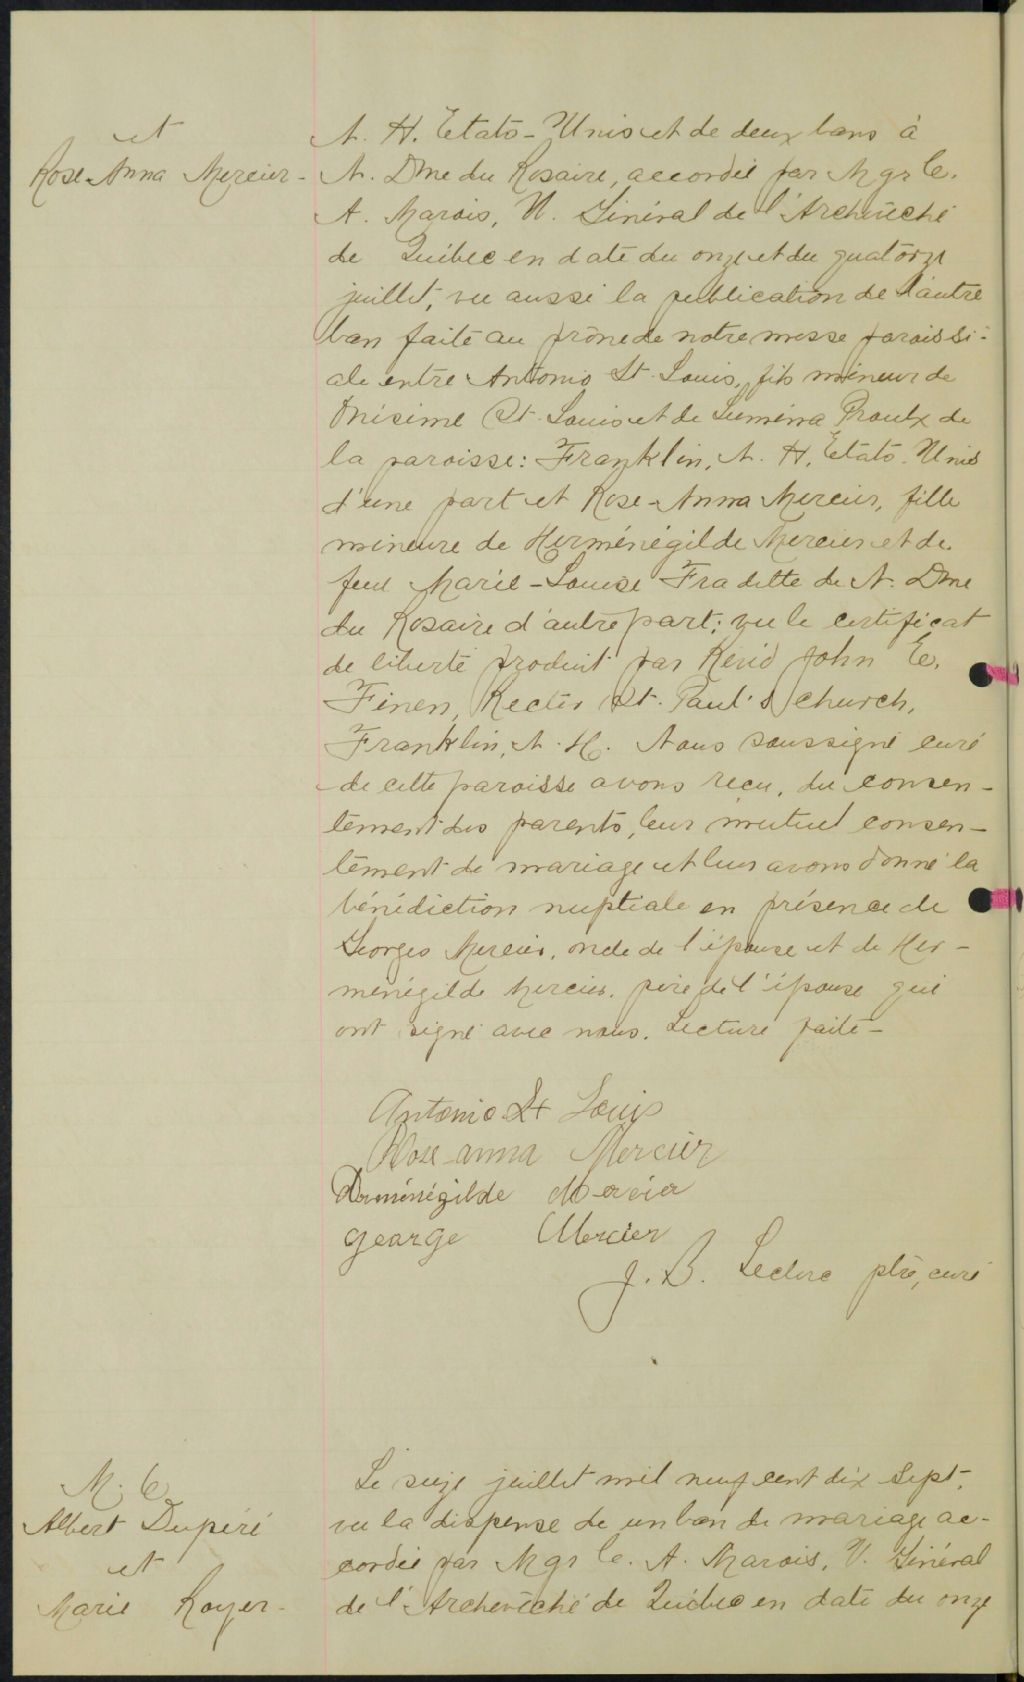 et
Rose-Anna Mercier-
N. H. Etats-Unis et de deux bans à
N. Dme du Rosaire, accordée par Mgr C.
A. Marois, V. Général de l'Archevêché
de Québec en date du onze et du quatorze
juillet, vu aussi la publication de l'autre
ban faite au prône de notre messe paroissi-
ale entre Antonio St. Louis, fils mineur de
Onésime St. Louis et de Luména Proulx de
la paroisse: Franklin, N. H. Etats-Unis
d'une part et Rose-Anna Mercier, fille
mineure de Herménégilde Mercier et de
feue Marie-Louise Fradette de N. Dme
du Rosaire d'autre part; vu le certificat
de liberté produit par Revid John E.
Finen, Rector St. Paul's church,
Franklin, N. H. Nous soussigné curé
de cette paroisse avons reçu, du consen-
tement des parents, leur mutuel consen-
tement de mariage et leur avons donné la
bénédiction nuptiale en présence de
Georges Mercier, oncle de l'épouse et de Her-
ménégilde Mercier, père de l'épouse qui
ont signé avec nous. Lecture faite-
Antonio St Louis
Rose-anna Mercier
Herménégilde Mercier
George Mercier
J. B. Leclerc ptre, curé
M. 6
Albert Dupéré
et
Marie Royer-
Le seize juillet mil neuf cent dix sept,
vu la dispense de un ban de mariage ac-
cordée par Mgr C. A. Marois, V. Général
de l'Archevêché de Québec en date du onze